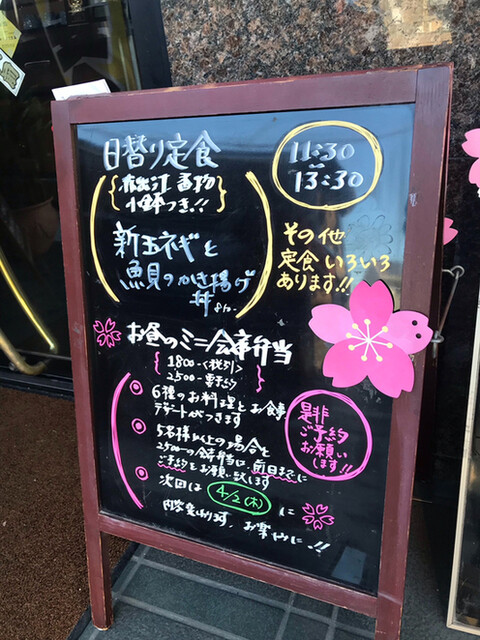 日替り定食
11:30
〜
13:30
味噌汁 香物
小鉢つき!!
新玉ネギと
魚貝のかき揚げ
丼
その他
定食いろいろ
あります!!
お昼のミニ会席弁当
1800-<税引>
2500-
6種のお料理とお食事
デザートがつきます
5名様以上の場合と
2500-の会席弁当は、前日までに
ご予約をお願い致します
是非
ご予約
お願い
します!!
次回は 4/2(木) に
内容変わります。お楽しみに!!